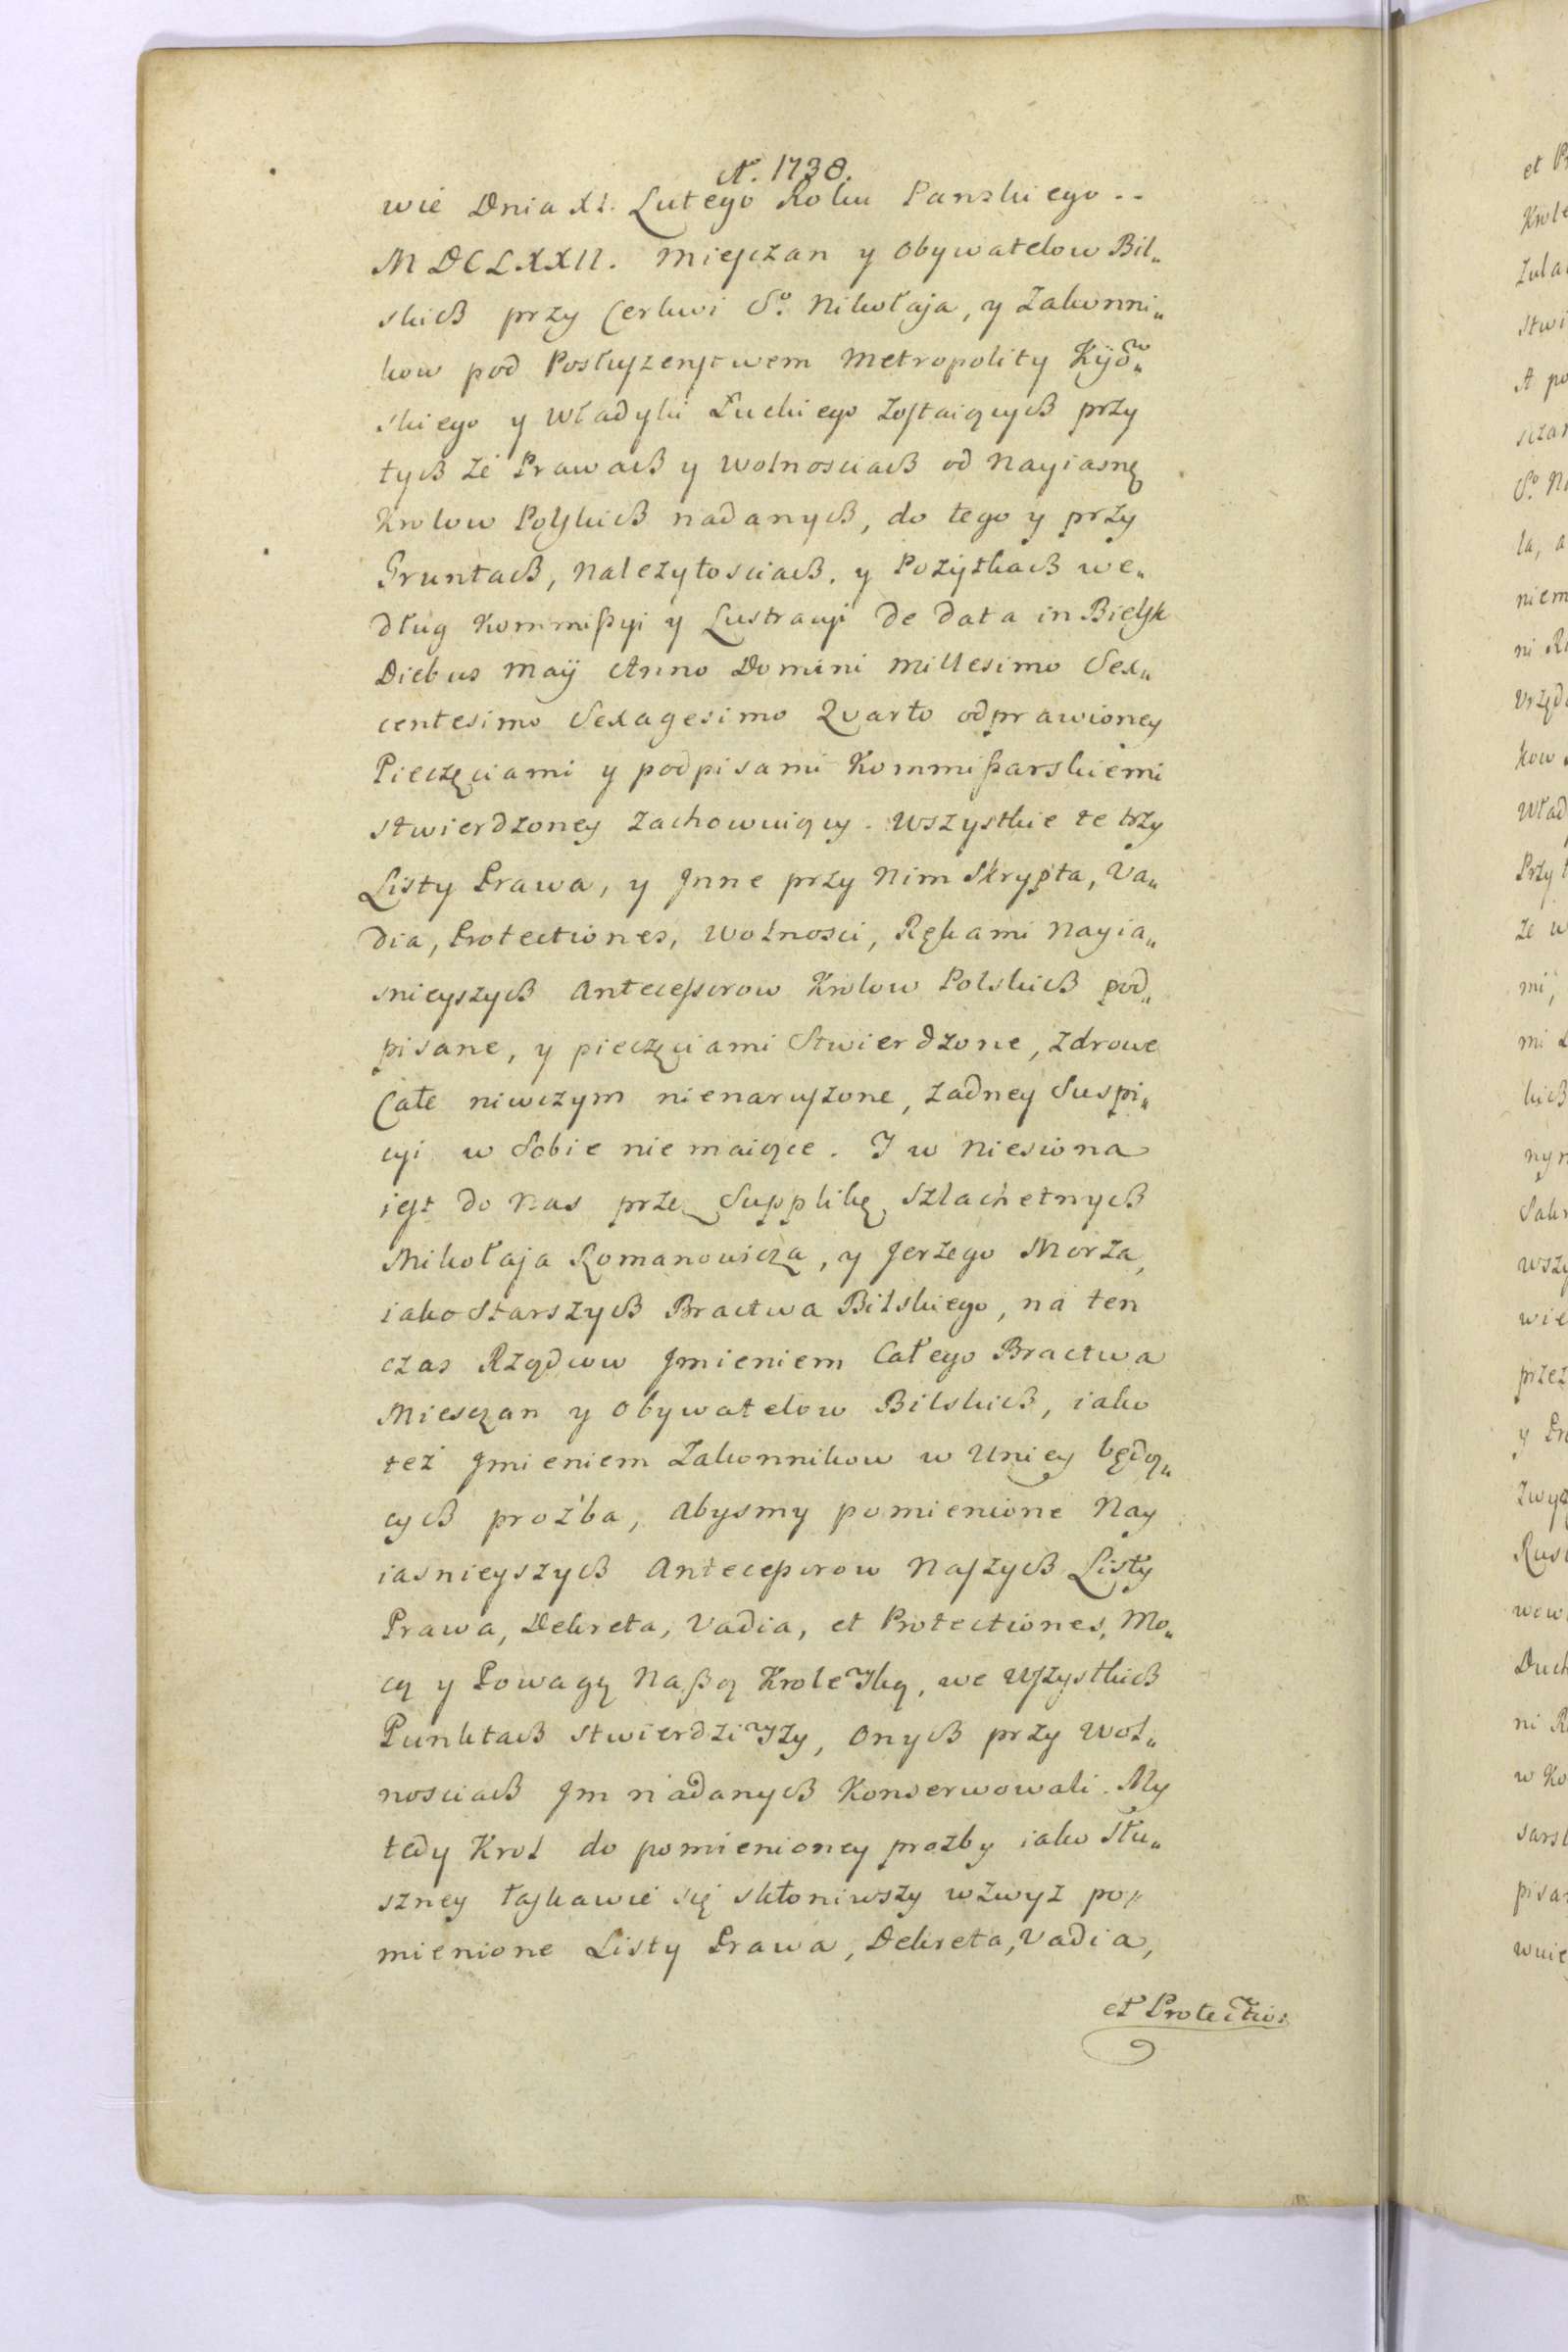 A. 1738.
wie Dnia XI. Lutego Roku Panskiego --
MDCLXXII. Miesczan y Obywatelow Bil„
skich przy Cerkwi S.o Nikołaja, y Zakonni„
kow pod Posłuszenstwem Metropolity Kÿow„
skiego y Władyki Łuckiego zostaiących przy
tych że Prawach y Wolnosciach od Nayiasnę
Krolow Polskich nadanych, do tego y przy
Gruntach, Nalezytosciach, y Pożytkach we„
dług Kommißyi y Lustracyi de data in Bielsk
Diebus Maÿ Anno Domini Millesimo Sex„
centesimo Sexagesimo Quarto odprawioney
Pieczęciami y podpisami Kommißarskiemi
stwierdzoney zachowuiący. Wszystkie te trzy
Listy Prawa, y Jnne przy Nim Skrypta, Va„
dia, Protectiones, Wolnosci, Rękami Nayia„
snieyszych Antecessorow Krolow Polskich pod„
pisane, y pieczęciami Stwierdzone, zdrowe
Całe niwczym nienaruszone, żadney Suspi„
cyi w Sobie nie maiące. I w Niesiona
iest do Nas przez Supplikę Szlachetnych
Mikołaja Romanowicza, y Jerzego Morza,
iako Starszych Bractwa Bilskiego, na ten
czas Rządcow Jmieniem Całego Bractwa
Miesczan y Obywatelow Bilskich, iako
też Jmieniem Zakonnikow w Uniey będą„
cych proźba, Abysmy pomienione Nay
iasnieyszych Anteceßorow Naszych Listy
Prawa, Dekreta, Vadia, et Protectiones, Mo„
cą y Powagą Naßą Krolewską, we Wszystkich
Punktach stwierdziwszy, Onych przy Wol„
nosciach Jm nadanych Konserwowali. My
tedy Krol do pomienioney prozby iako Słu„
szney łaskawie się skłoniwszy wzwyż po„
mienione Listy Prawa, Dekreta, Vadia,
et Protectio: